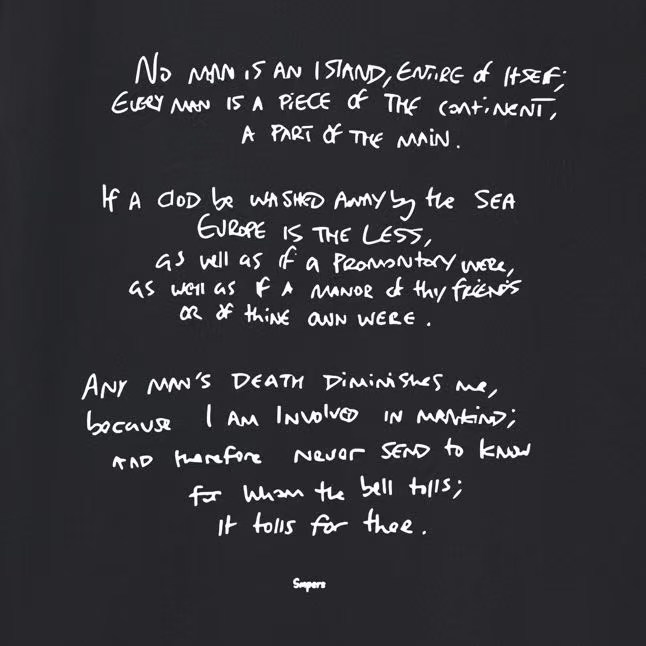 No MAN iS AN ISTAND, ENTIRE of ITSELF;
EVERY MAN IS A PIECE OF THE CONTINENT,
A PART OF THE MAIN.
If A CLOD be WASHED AWAY by the SEA
EUROPE IS THE LESS,
as well as if a PROMONTORY WERE,
as well as if A MANOR of thy friends
OR of thine OWN WERE.
ANY MAN'S DEATH DiminisHes me,
because I AM INVOLVED IN MANKIND;
AND therefore never SEND to KNOW
for whom the bell tolls;
It tolls for thee.